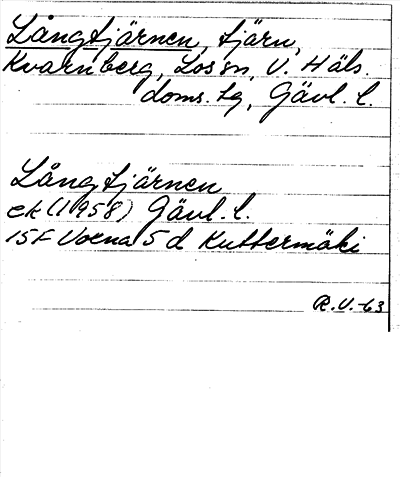 Långtjärnen, tjärn,
Kvarnberg, Los sn, V. Häls.
doms. tg, Gävl. l.
Långtjärnen
ek (1958) Gävl. l.
15F Voxna 5 d Kuttermäki
R.V.-63